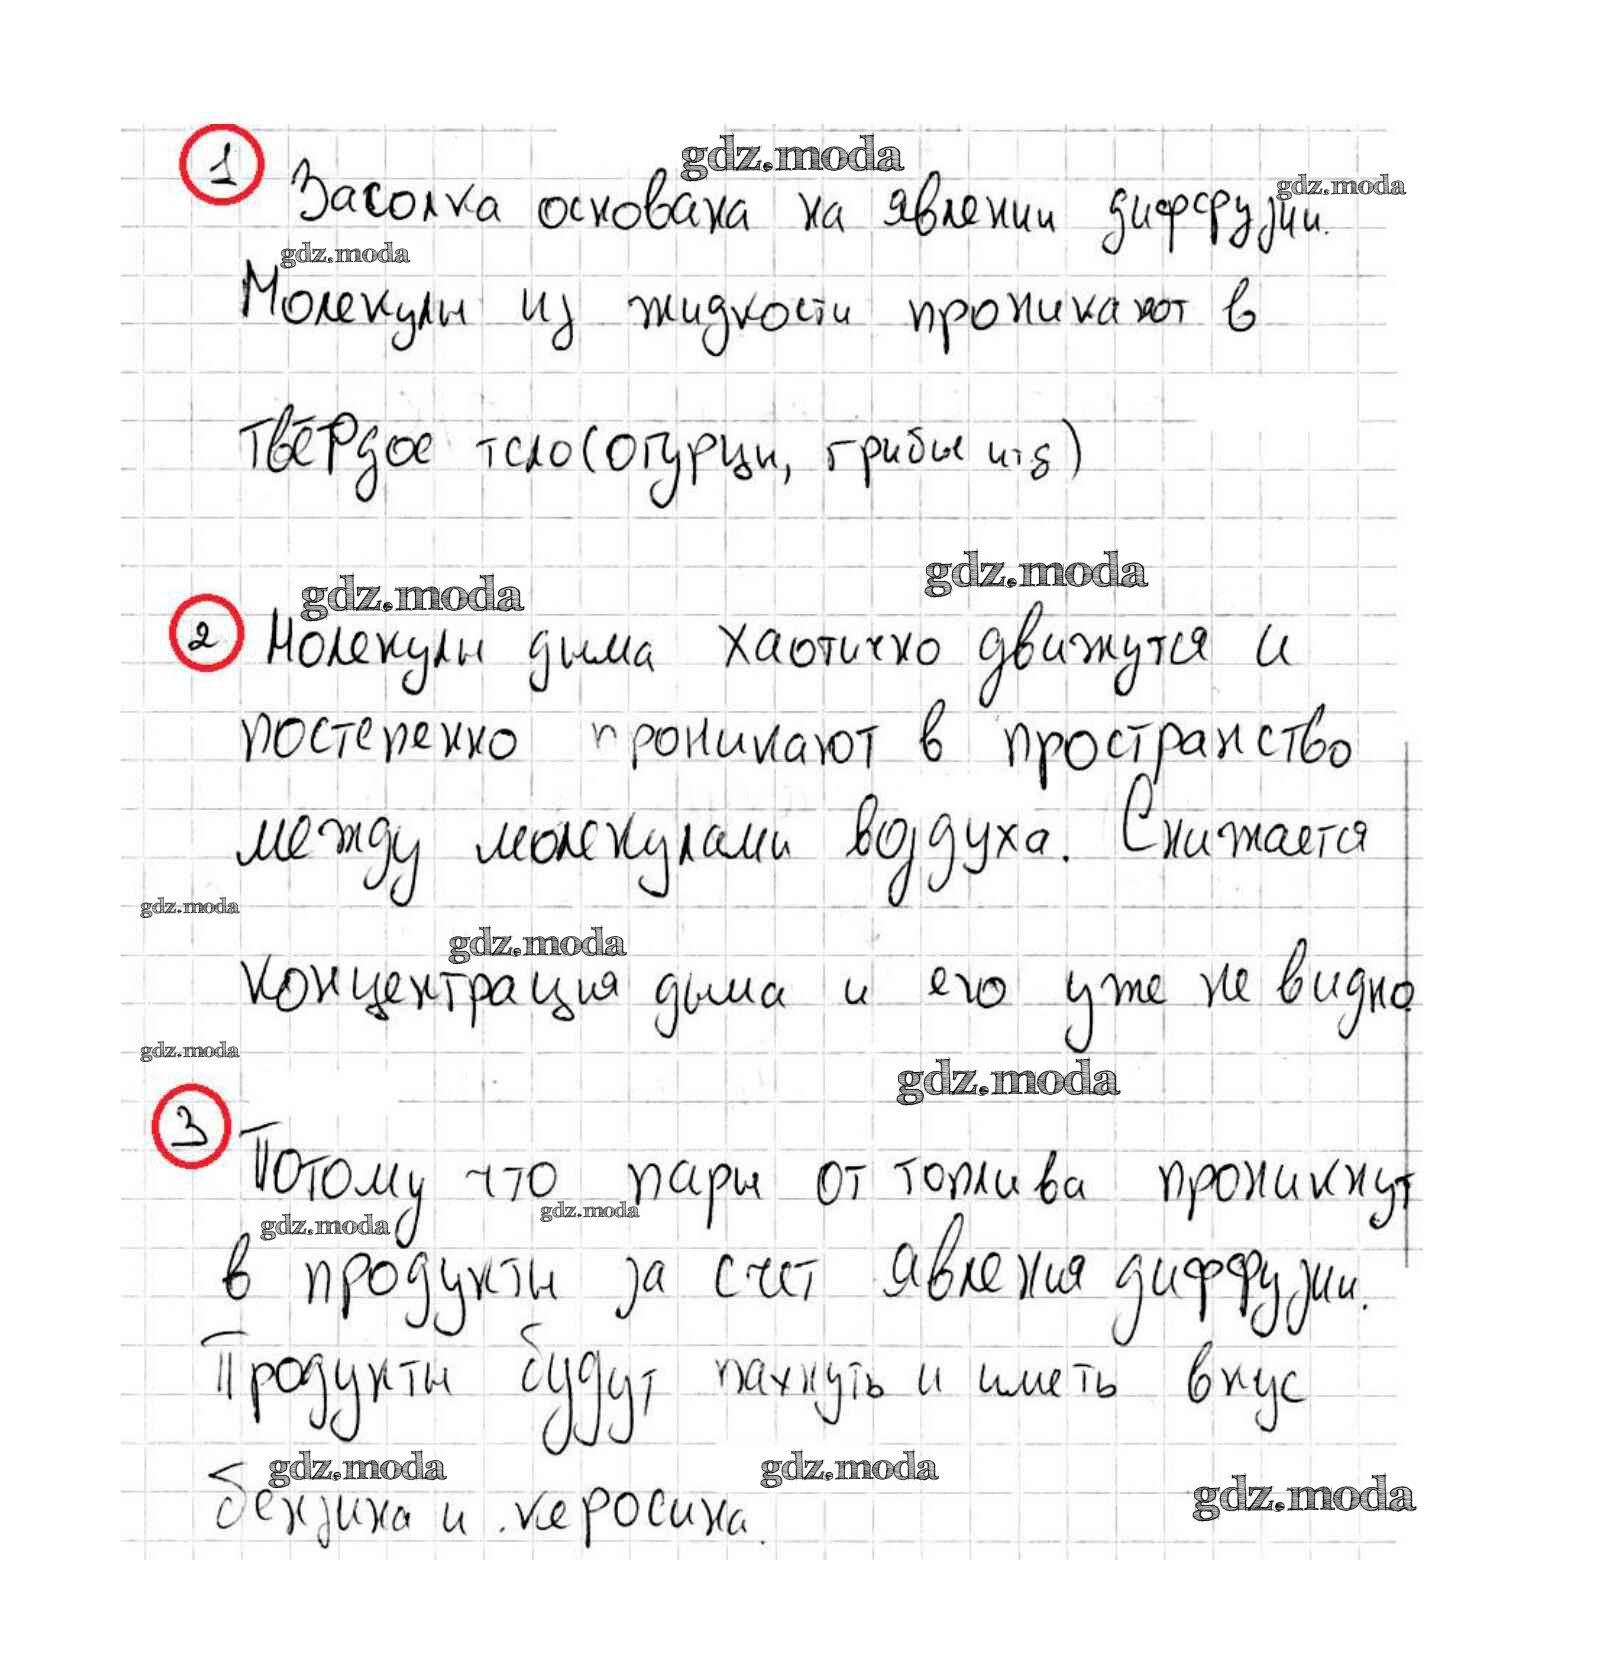 gdz.moda
1 Засолка основана на явлении диффузии.
gdz.moda
gdz.moda
Молекулы из жидкости проникают в
твёрдое тело (огурцы, грибы и т.д)
gdz.moda
gdz.moda
2 Молекулы дыма хаотично движутся и
постепенно проникают в пространство
между молекулами воздуха. Снижается
gdz.moda
gdz.moda
концентрация дыма и его уже не видно
gdz.moda
gdz.moda
3 Потому что пары от топлива проникнут
gdz.moda
gdz.moda
в продукты за счет явления диффузии.
Продукты будут пахнуть и иметь вкус
gdz.moda
gdz.moda
gdz.moda
бензина и керосина.